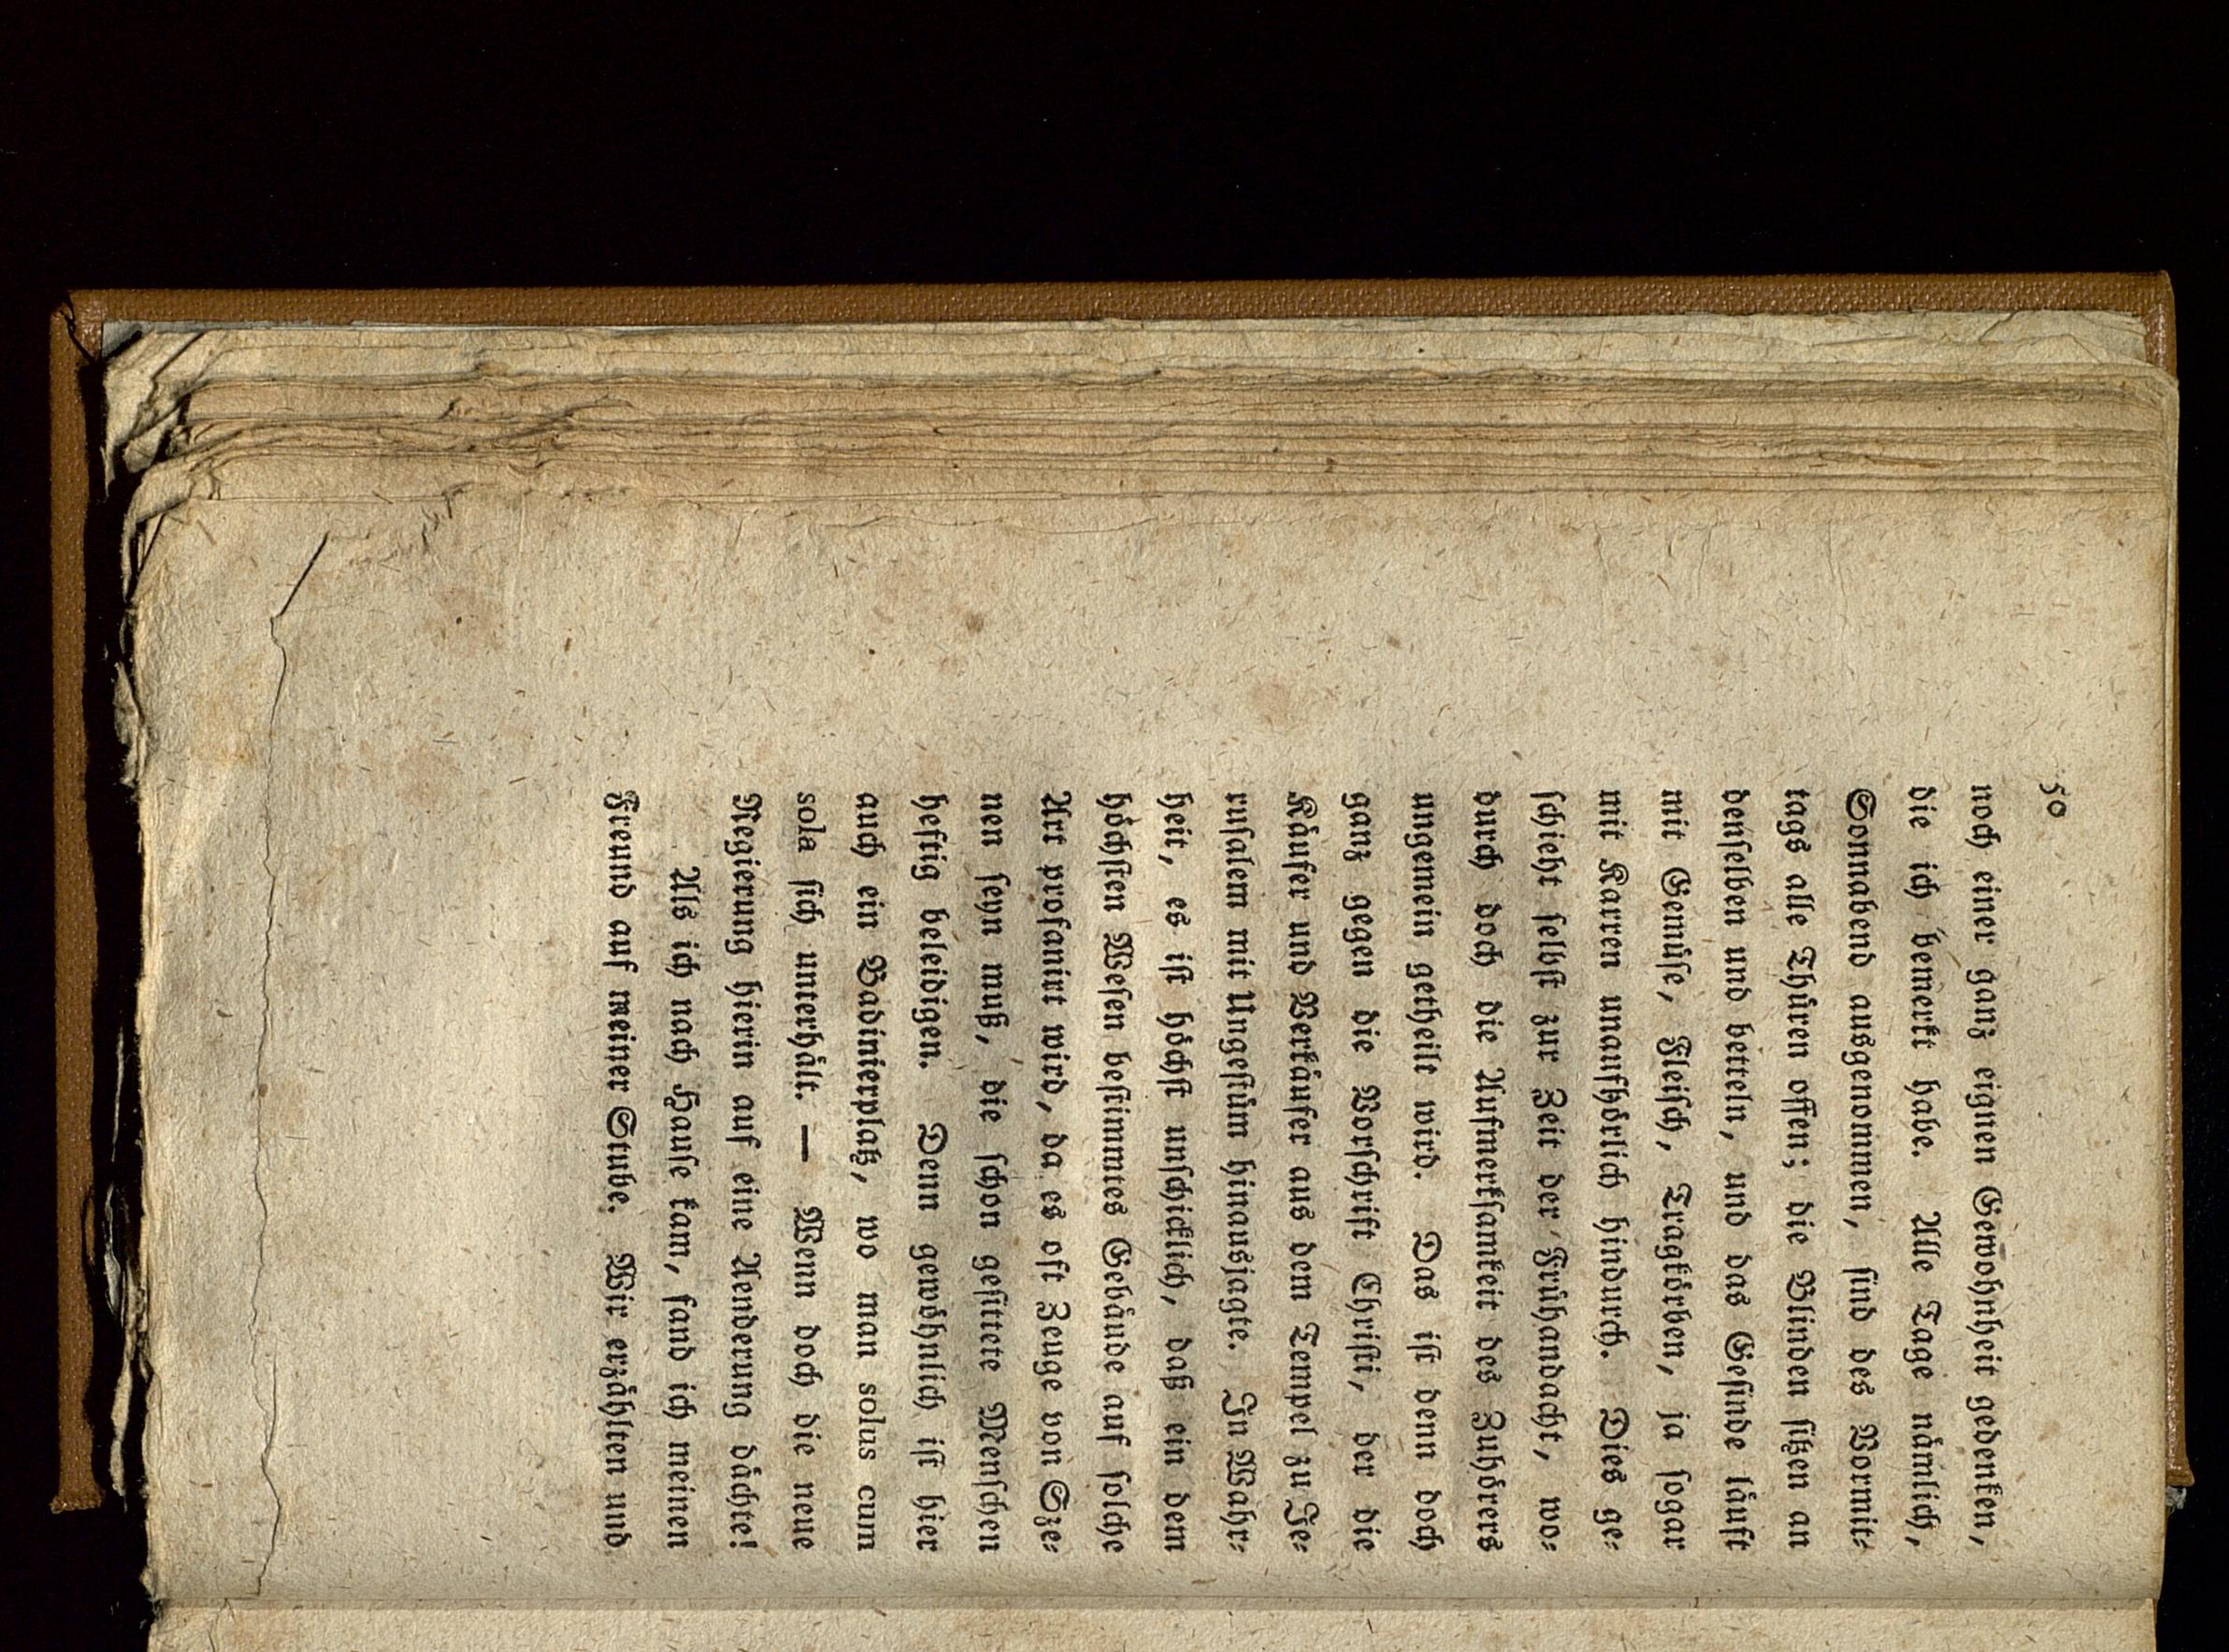 50
noch einer ganz eignen Gewohnheit gedenken,
die ich bemerkt habe. Alle Tage nämlich,
Sonnabend ausgenommen, ſind des Vormit⸗
tags alle Thüren offen; die Blinden ſitzen an
denſelben und betteln, und das Geſinde läuft
mit Gemüſe, Fleiſch, Tragkörben, ja ſogar
mit Karren unaufhörlich hindurch. Dies ge⸗
ſchieht ſelbſt zur Zeit der Frühandacht, wo⸗
durch doch die Aufmerkſamkeit des Zuhörers
ungemein getheilt wird. Das iſt denn doch
ganz gegen die Vorſchrift Chriſti, der die
Käufer und Verkäufer aus dem Tempel zu Je⸗
ruſalem mit Ungeſtüm hinausjagte. In Wahr⸗
heit, es iſt höchſt unſchicklich, daß ein dem
höchſten Weſen beſtimmtes Gebäude auf ſolche
Art profanirt wird, da es oft Zeuge von Sze⸗
nen ſeyn muß, die ſchon geſittete Menſchen
heftig beleidigen. Denn gewöhnlich iſt hier
auch ein Badinierplatz, wo man solus cum
sola ſich unterhält. — Wenn doch die neue
Regierung hierin auf eine Aenderung dächte!
Als ich nach Hauſe kam, fand ich meinen
Freund auf meiner Stube. Wir erzählten und